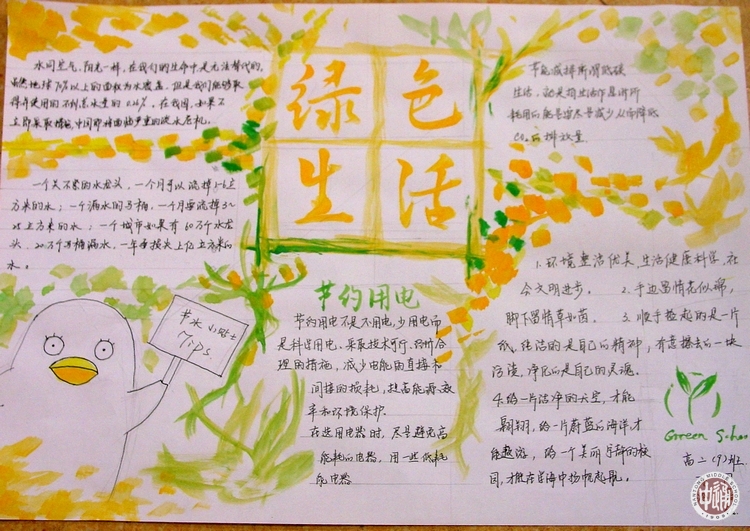 绿色
生活
水同空气、阳光一样，在我们的生命中是无法替代的，
虽然地球70%以上的面积为水覆盖，但是我们能够取
得并使用的不到总水量的0.26%，在我国，如果不
立即采取措施，中国即将面临严重的淡水危机。
一个关不紧的水龙头，一个月可以流掉1-6立
方米的水；一个漏水的马桶，一个月要流掉3-
25立方米的水；一个城市如果有60万个水龙
头、20万个马桶漏水，一年会损失上亿立方米的
水。
节水小贴士
Tips.
节约用电
节约用电不是不用电，少用电而
是科学用电，采取技术可行、经济合
理的措施，减少电能的直接和
间接的损耗，提高能源效
率和环境保护
在选用电器时，尽量避免高
能耗的电器，用一些低耗
能电器
节能减排所谓低碳
生活，就是指生活作息时所
耗用的能量要尽量减少从而降低
CO₂的排放量
1. 环境整洁优美，生活健康科学，社
会文明进步。 2. 手边留情花似锦，
脚下留情草如茵。 3. 顺手捡起的是一片
纸，纯洁的是自己的精神，有意擦去的一块
污渍，净化的是自己的灵魂。
4. 给一片洁净的天空，才能
翱翔，给一片蔚蓝的海洋才
能遨游，给一个美丽
园，才能在学海中扬帆起航。
Green
高二(9)班
NANTONG MIDDLE SCHOOL
1909